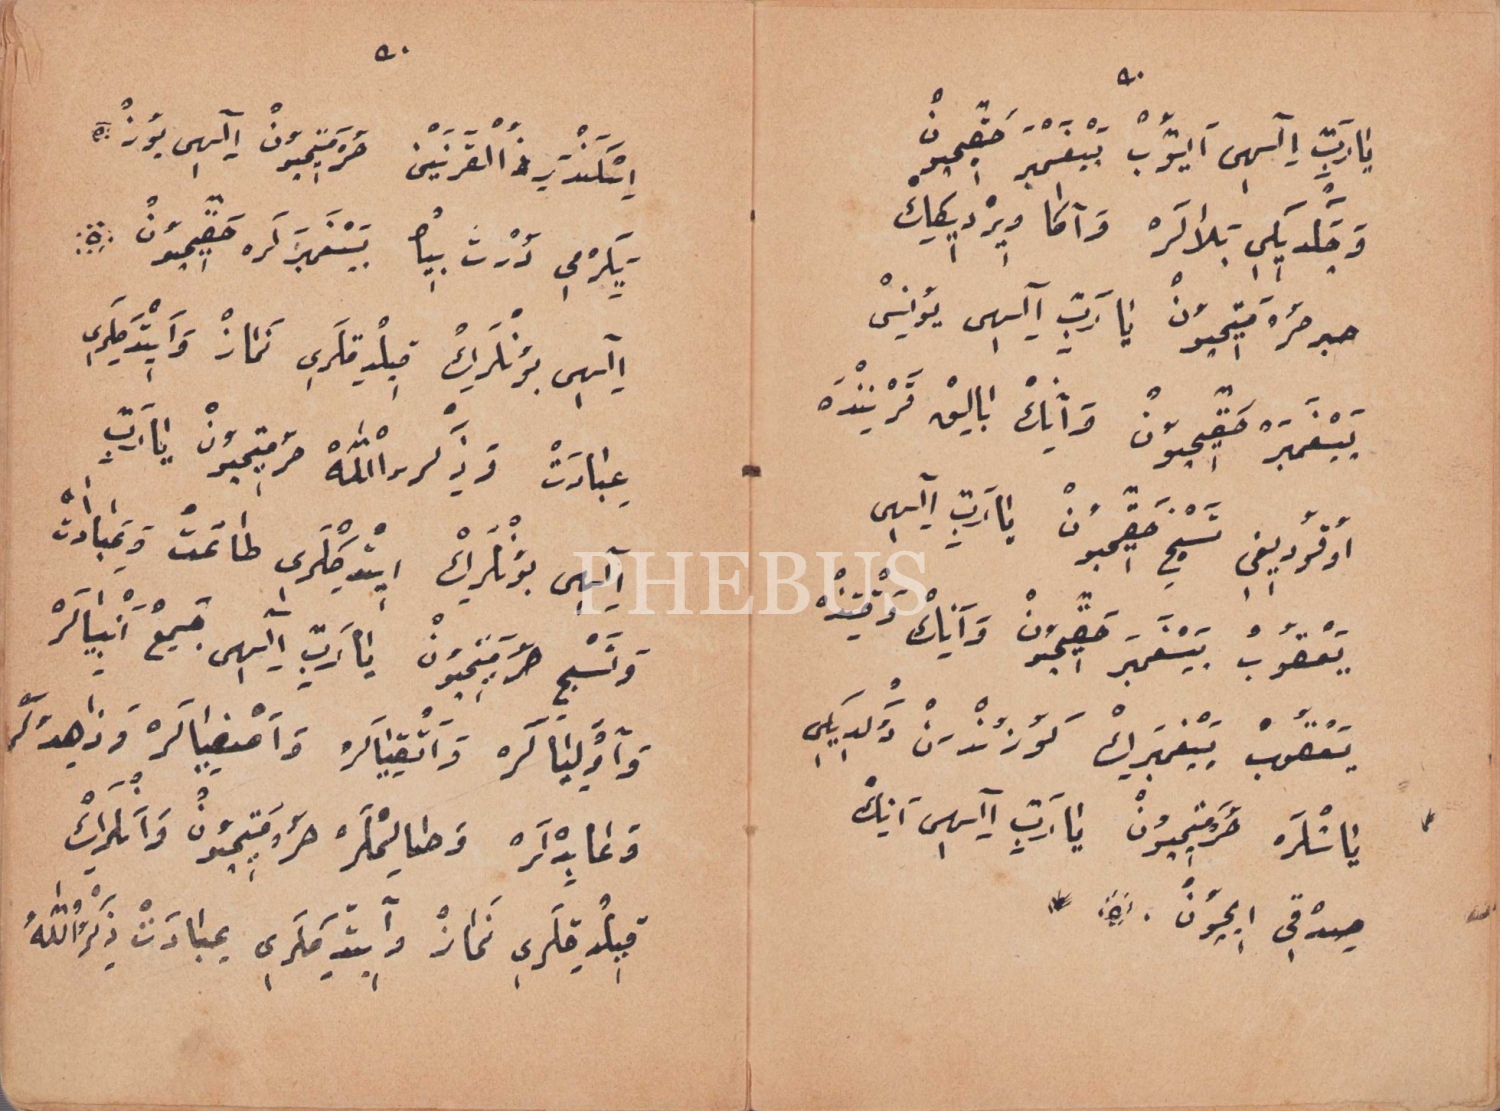 ٥٠
يَارَبِّ اِلٰهِى اَيُّوبْ پَيْغَمْبَرْ حَقِّيچُونْ
وَچَكْدِيكِى بَلَالَرَه وَآكَا وِيرْدِيكِكْ
صبر حُرْمَتِيچُونْ يَارَبِّ اِلٰهِى يُونِسْ
پَيْغَمْبَرْ حَقِّيچُونْ وَآنِكْ بَالِيقْ قَرْنِنْدَه
اُوقُودِيغِى تَسْبِيحْ حَقِّيچُونْ يَارَبِّ اِلٰهِى
يَعْقُوبْ پَيْغَمْبَرْ حَقِّيچُونْ وَآنِكْ وَقْتِنْدَه
يَعْقُوبْ پَيْغَمْبَرِكْ كُوزُنْدَنْ دُكْدِيكِى
يَاشْلَرَه حُرْمَتِيچُونْ يَارَبِّ اِلٰهِى آنِكْ
صِدْقِى اِيچُونْ
٥٠
اِسْكَنْدَرِ ذُالْقَرْنَيْنْ حُرْمَتِيچُونْ اِلٰهِى يُوزْ
يِكِرْمِى دُرْتْ بِيڭ پَيْغَمْبَرْلَرَه حَقِّيچُونْ
اِلٰهِى بُونْلَرِكْ قِيلْدِقلَرِى نَمَازْ وَاِيتْدِكلَرِى
عِبَادَتْ وَذِكْرُاللّٰهْ حُرمتيچُونْ يَارَبِّ
اِلٰهِى بُونْلَرِكْ اِيتْدِكْلَرِى طَاعَتْ وَعِبَادَتْ
وَتَسْبِيح حُرْمَتِيچُونْ يَارَبِّ اِلٰهِى جَمِيعْ اَنْبِيَالَرْ
وَآوْلِيَالَرَه وَاَتْقِيَالَره وَاَصْفِيَالَرَه وَزَاهِدلَرْ
وَعَابِدْلَرَه وَصَالِحْلَرَه حُرْمَتِيچُونْ وَآنْلَرِكْ
قِيلْدِقلَرِى نَمَازْ وَاِيتْدِكلَرِى عِبَادَتْ ذِكْرُاللّٰهْ
PHEBUS